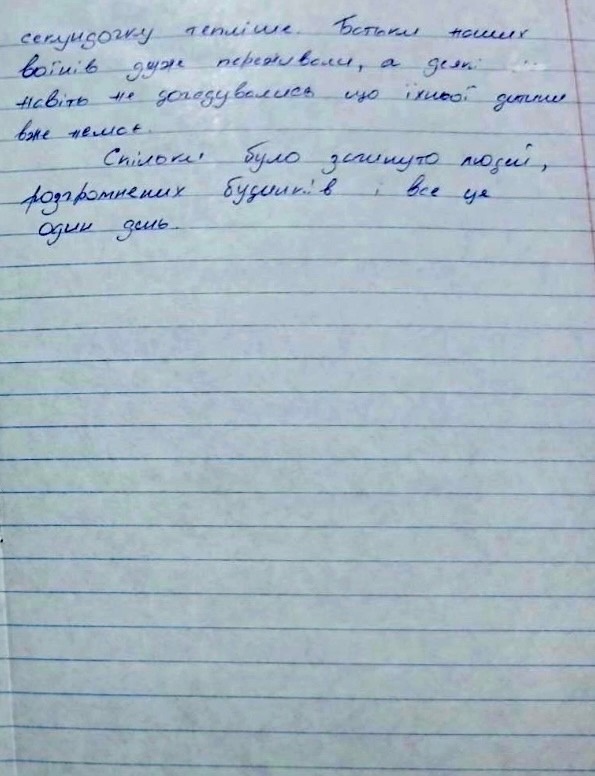 секундочку тепліше. Батьки наших
воїнів дуже переживали, а деякі
навіть не догадувались що їхньої дитини
вже немає.
Спільки було загинуто людей,
розгромнених будинків і все це
один день.